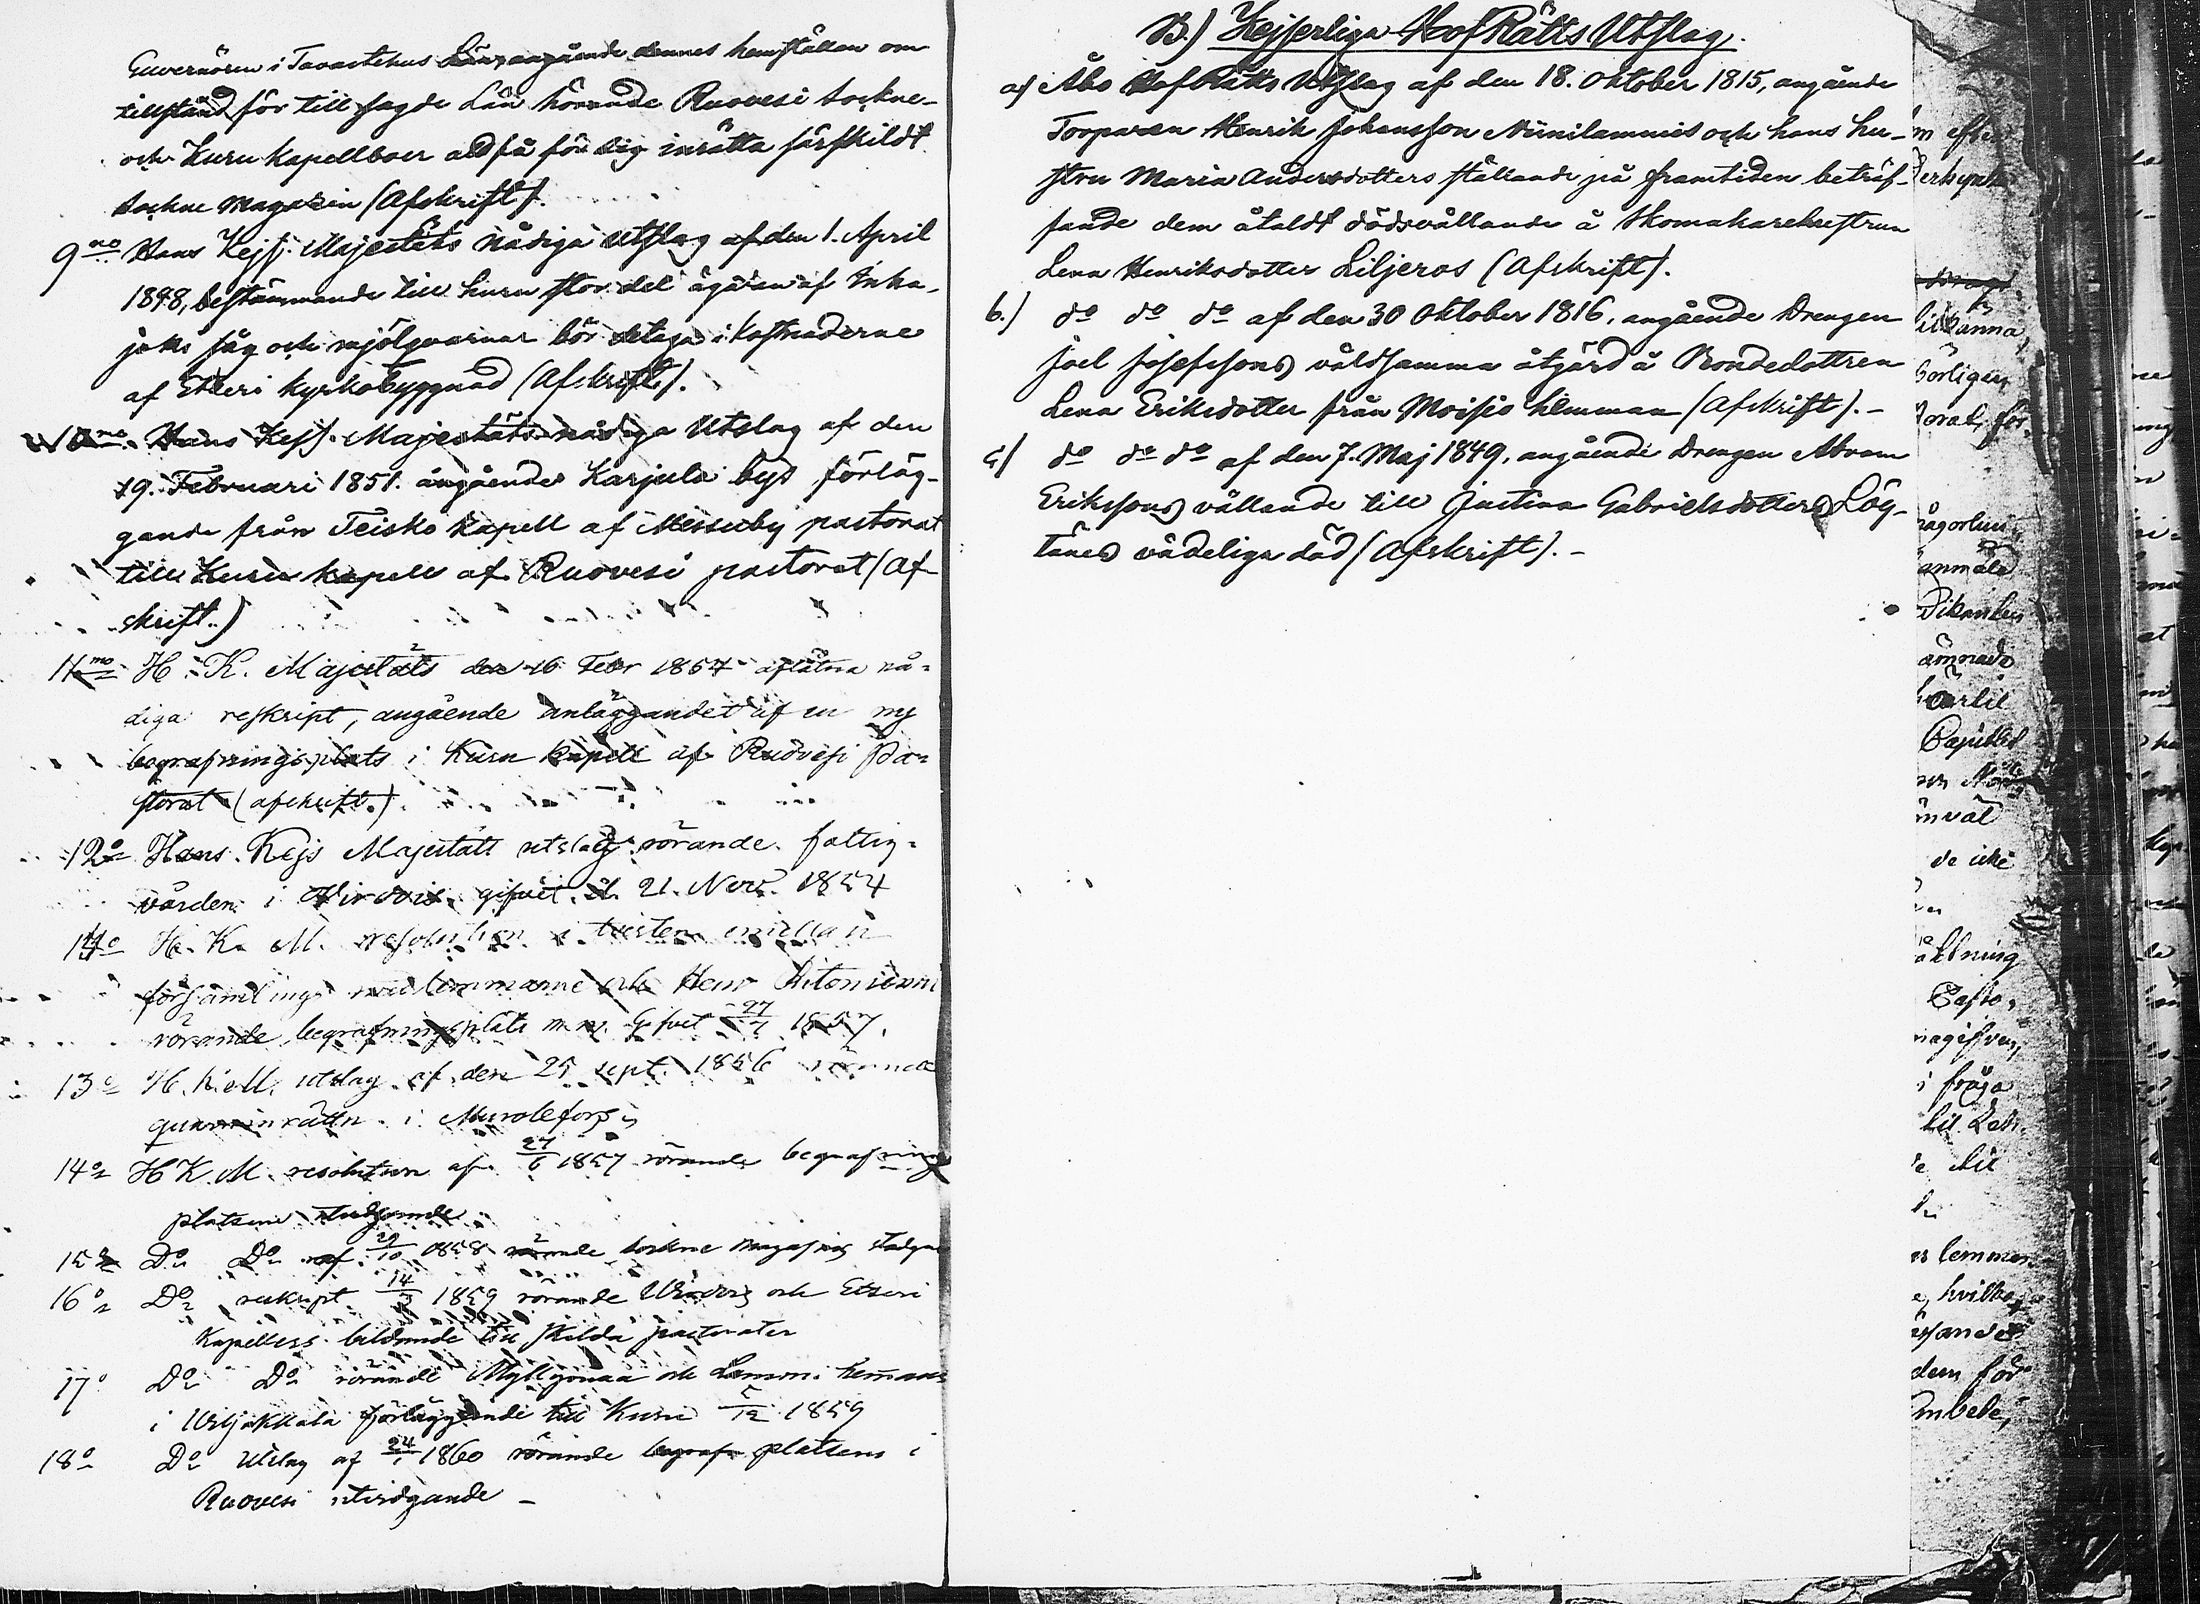 Guvernören i Tavastehus Län, angående dennes hemställan om
tillstånd för till sagde Län hörande Ruovesi sockne-
och Kuru kapellboer att få för sig inrätta särskildt
sockne magazin (Afskrift).
9no Hans Kejs. Majestäts nådiga Utslag af den 1. April
1848, bestämmande till huru stor del ägaren af Inha,
joki såg och mjölqvarnar bör deltaga i kostnaderne
af Etseri kyrkobyggnad (Afskrift).
10mo Hans Kejs. Majestäts nådiga Utslag af den
19. Februari 1851. angående Karjula bys förläg-
gande från Teisko kapell af Messuby pastorat
till Kuru kapell af Ruovesi pastorat (Af-
skrift.)
11mo H. K. Majestäts den 16 Febr 1854 aflåtna nå-
diga reskript, angående anläggandet af en ny
begrafningsplats i Kuru kapell af Ruovesi Pa-
storat (afskrift.)
12o Hans Kejs Majestäts utslag rörande fattig-
vården i Virdois gifvet d. 21. Nov. 1854
14o H. K. M. resolution i tvisten emellan
församlings medlemmarne och Henr Ritoniemi
rörande begrafningsplats m.m. Gifvet 27/7 1857.
13o H. K. M. utslag af den 25 sept. 1856 rörande
qvarninrättn. i Murolefors
14o H K. M. resolution af 27/6 1857 rörande begrafnings
platsens utvidgande
15o Do Do af 29/10 1858 rörande sockne magasins stadgar
16o Do reskript 14/3 1859 rörande Virdois och Etseri
Kapellers bildande till skilda pastorater
17o Do Do rörande Myllyomaa och Lamon hemman
i Viljakkala förläggande till Kuru 5/12 1859
18o Do Utslag af 24/1 1860 rörande begrafn platsens i
Ruovesi utvidgande –
B.) Kejserliga HofRätts Utslag.
a) Åbo HofRätts Utslag af den 18. Oktober 1815, angående
Torparen Henrik Johansson Niinilammis och hans hu-
stru Maria Andersdotters ställande på framtiden beträf-
fande dem åtaldt dödsvållande å Skomakarehustrun
Lena Henriksdotter Liljeros (Afskrift).
b.) do do do af den 30 Oktober 1816, angående Drengen
Joel Josefssons våldsamma åtgärd å Bondedottren
Lena Eriksdotter från Moisio hemman (Afskrift). –
c) do do do af den 7. Maj 1849, angående Drengen Abram
Erikssons vållande till Justina Gabrielsdotters Lög-
tänes vådeliga död (Afskrift). –